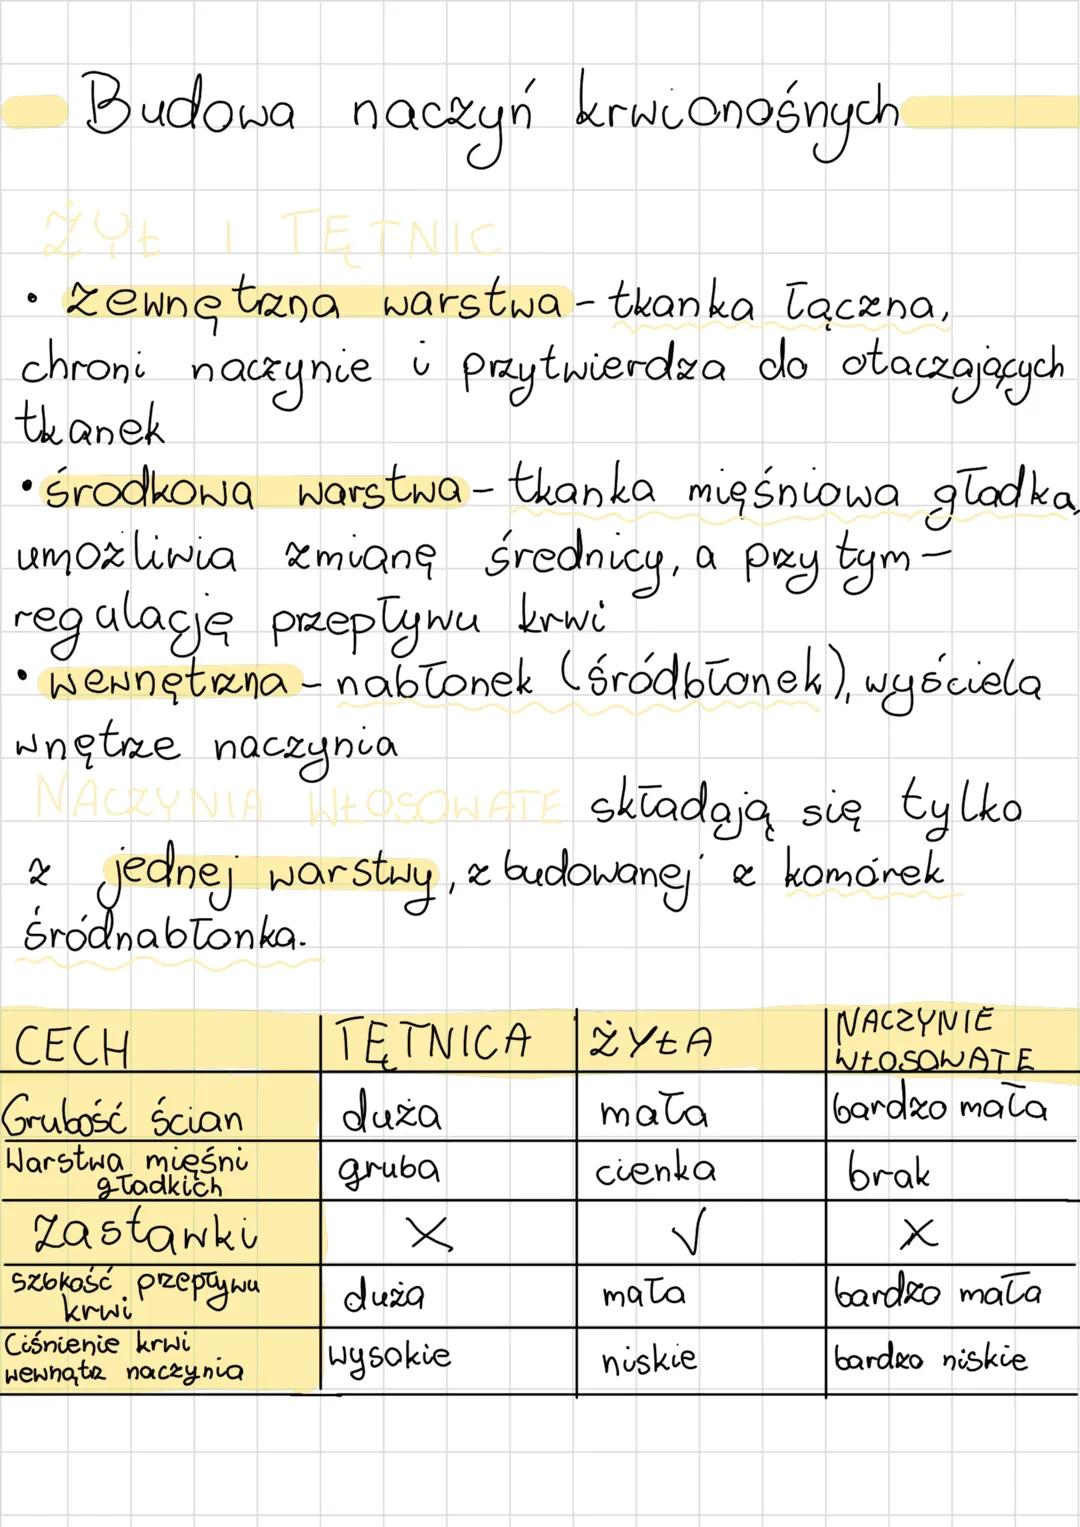 Budowa naczyń krwionośnych
ŻYŁ I TĘTNIC
• zewnętrzna warstwa - tkanka łączna,
chroni naczynie i przytwierdza do otaczających
tkanek
• środkowa warstwa - tkanka mięśniowa gładka,
umożliwia zmianę średnicy, a przy tym -
regulację przepływu krwi
• wewnętrzna - nabłonek (śródbłonek), wyściela
wnętrze naczynia
NACZYNIA WŁOSOWATE składają się tylko
z jednej warstwy, zbudowanej z komórek
śródnabłonka.
CECH TĘTNICA ŻYŁA NACZYNIE WŁOSOWATE
Grubość ścian duża mała bardzo mała
Warstwa mięśni gładkich gruba cienka brak
Zastawki X √ X
szbkość przepływu krwi duża mała bardzo mała
Ciśnienie krwi wewnątrz naczynia wysokie niskie bardzo niskie